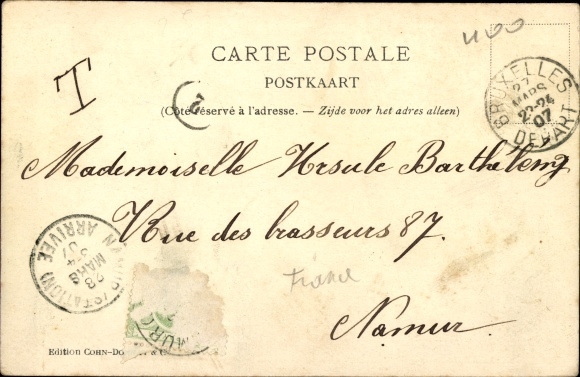 4100
CARTE POSTALE
POSTKAART
T
2
(Côté réservé à l'adresse. — Zijde voor het adres alleen)
BRUXELLES
22
MARS
22-24
07
DEPART
Mademoiselle Ursule Barthelemy
Rue des brasseurs 87.
NAMUR (STATION)
28
MARS
07
ARRIVEE
France
Namur.
Edition COHN-DO & C